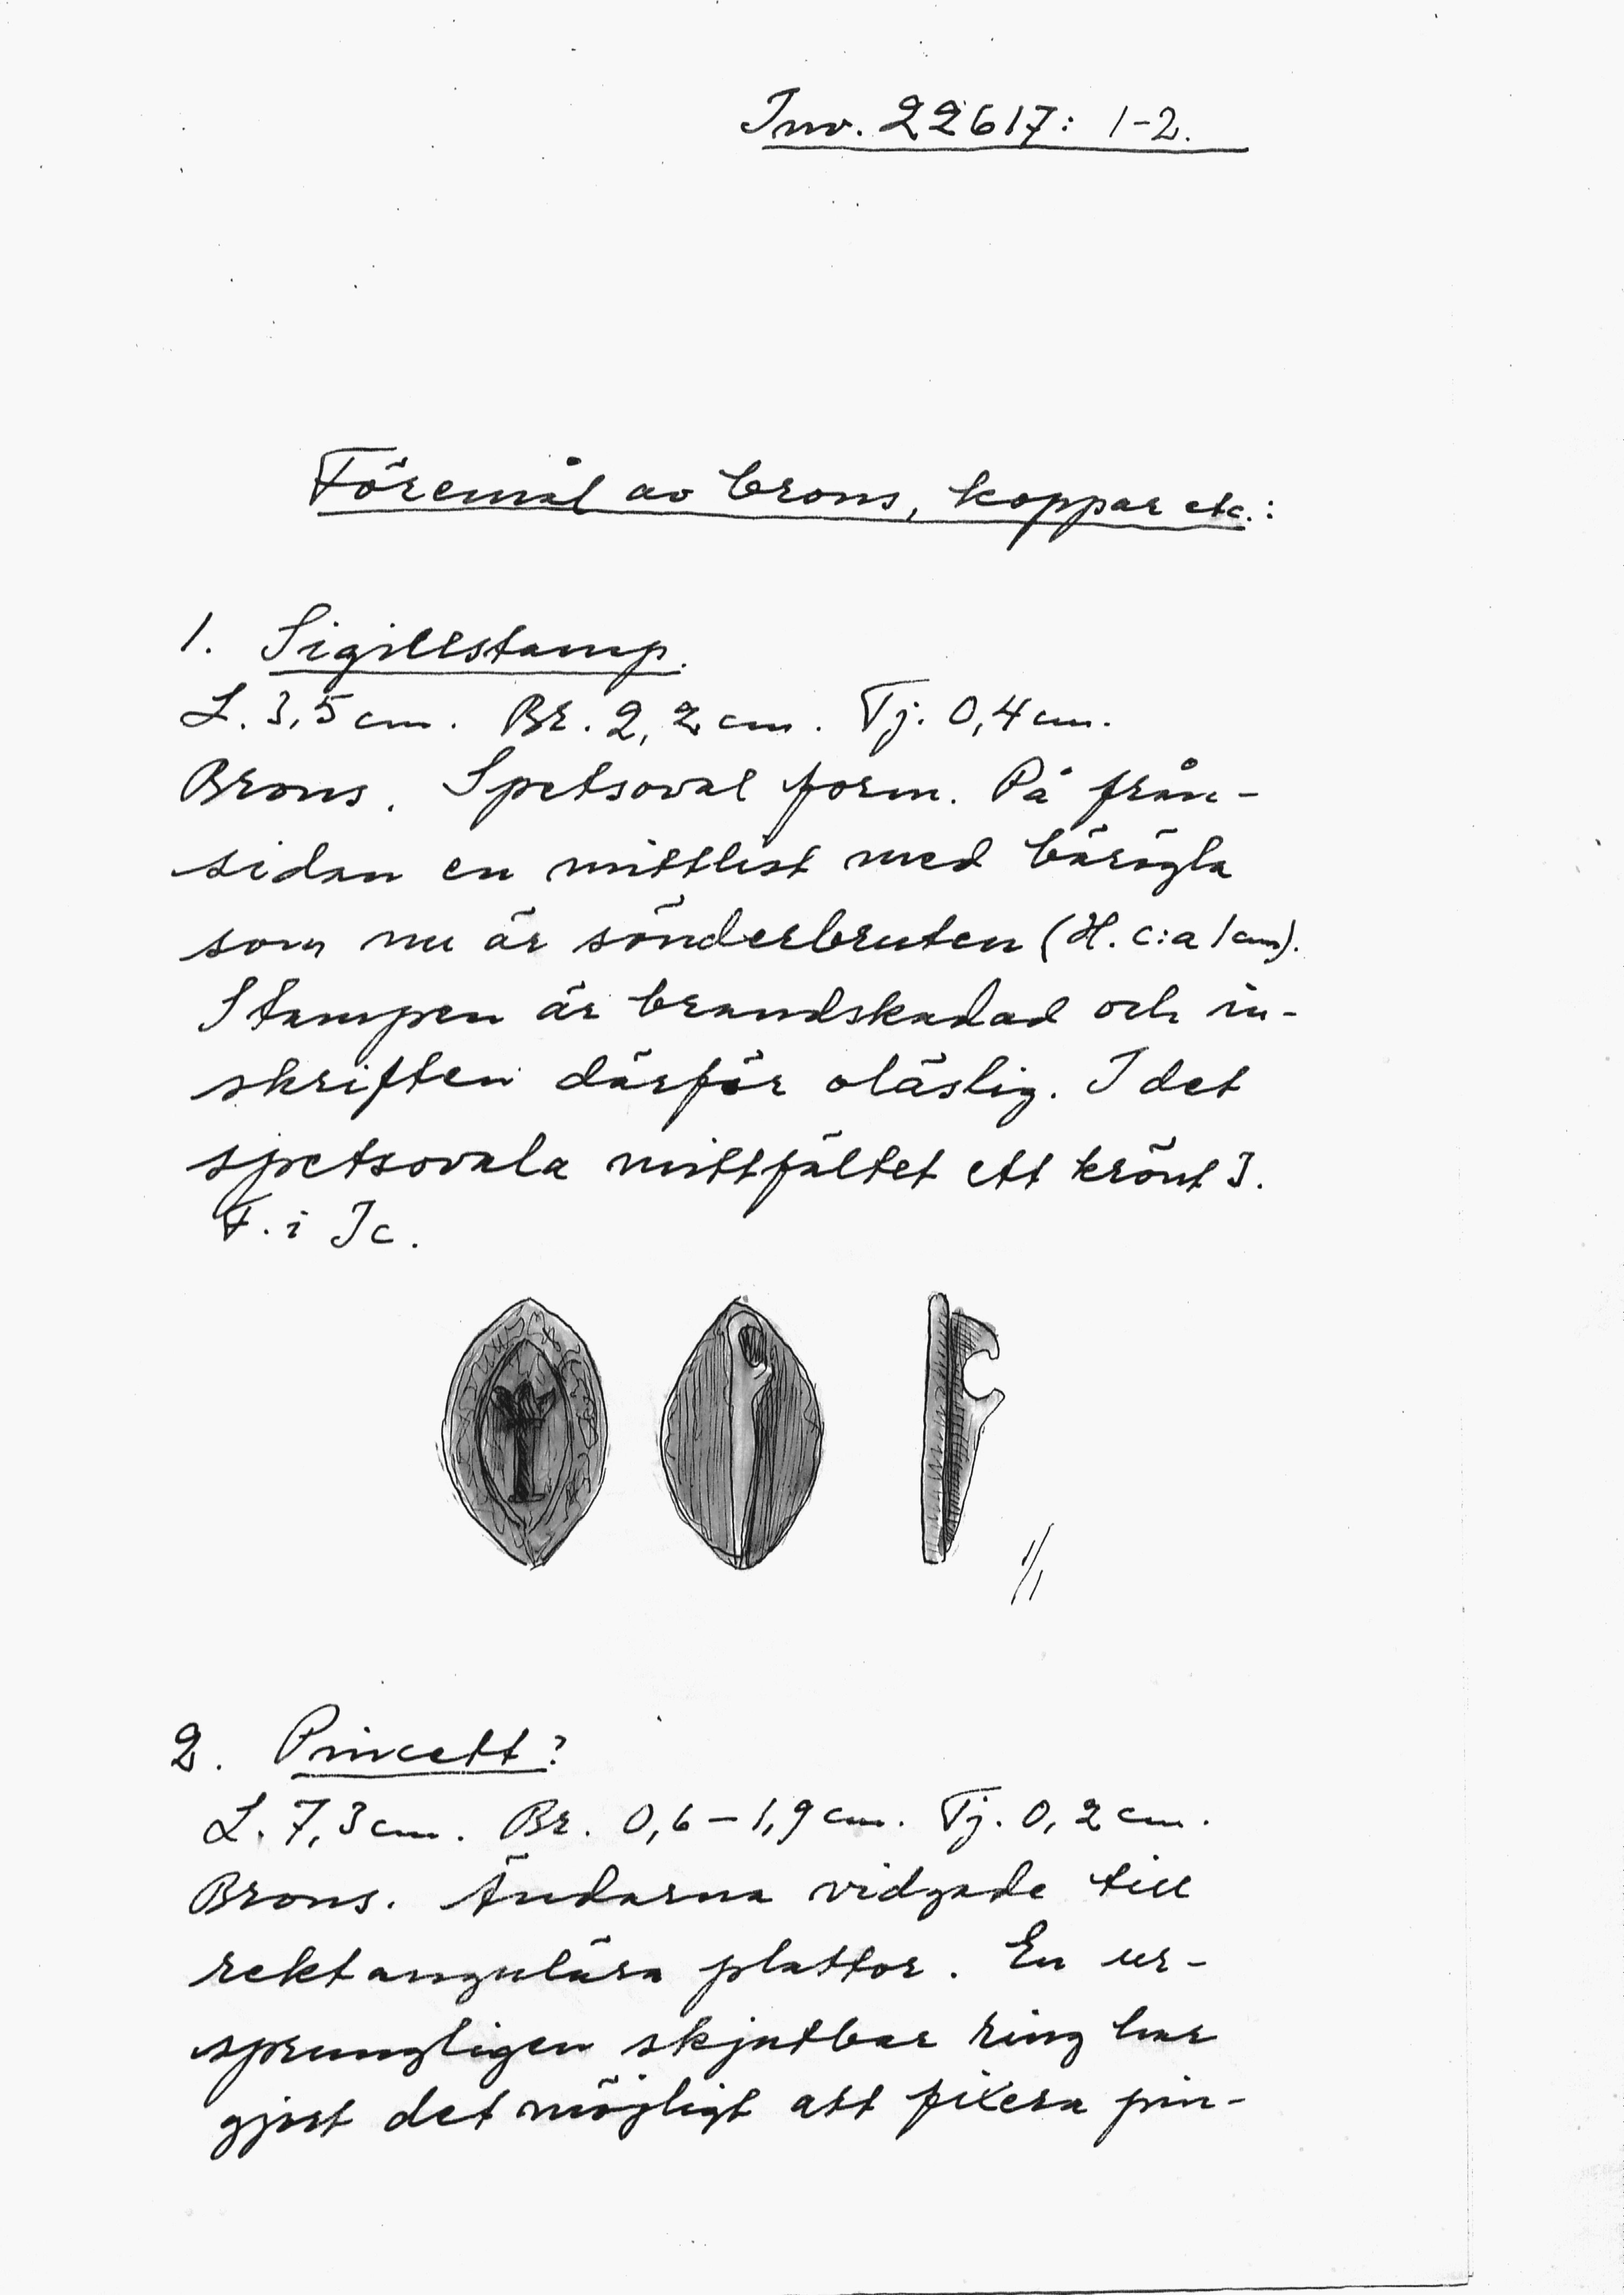 Inv. 22617: 1-2.
Föremål av brons, koppar etc.:
1. Sigillstamp.
L. 3,5 cm. Br. 2,2 cm. Tj. 0,4 cm.
Brons. Spetsoval form. På från-
sidan en mittlist med bärögla
som nu är sönderbruten (H. c:a 1 cm).
Stampen är brandskadad och in-
skriften därför oläslig. I det
spetsovala mittfältet ett krönt I.
F. i Ic.
1/1
2. Pincett?
L. 7,3 cm. Br. 0,6-1,9 cm. Tj. 0,2 cm.
Brons. Ändarna vidgade till
rektangulära plattor. En ur-
sprungligen skjutbar ring har
gjort det möjligt att fixera pin-